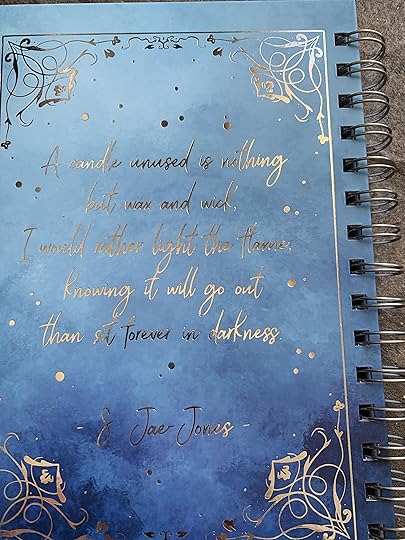 A candle unused is nothing
but wax and wick,
I would rather light the flame,
knowing it will go out
than sit forever in darkness.
- S Jae-Jones -